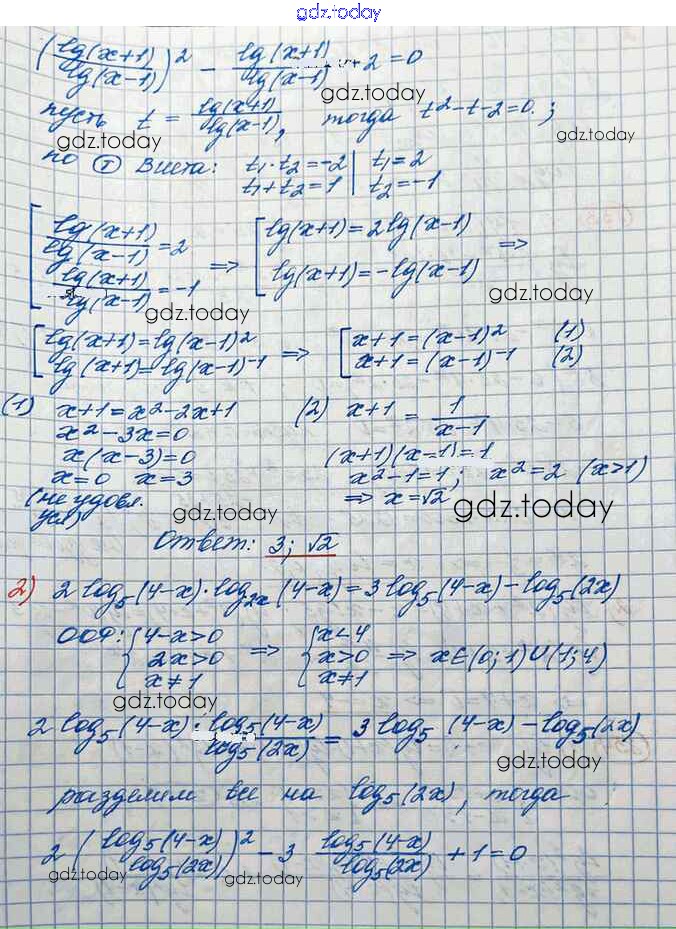 gdz.today
(lg(x+1)/lg(x-1))² - lg(x+1)/lg(x-1) - 2 = 0
gdz.today
пусть t = lg(x+1)/lg(x-1), тогда t²-t-2=0.;
gdz.today gdz.today
по Т Виета: t₁·t₂=-2 | t₁=2
t₁+t₂=1 | t₂=-1
[ lg(x+1)/lg(x-1) = 2 => [ lg(x+1)=2lg(x-1) =>
lg(x+1)/lg(x-1) = -1 lg(x+1)=-lg(x-1)
gdz.today gdz.today
[ lg(x+1)=lg(x-1)² => [ x+1=(x-1)² (1)
lg(x+1)=lg(x-1)⁻¹ x+1=(x-1)⁻¹ (2)
(1) x+1=x²-2x+1 (2) x+1 = 1/(x-1)
x²-3x=0 (x+1)(x-1)=1
x(x-3)=0 x²-1=1; x²=2 (x>1)
x=0 x=3 => x=√2
(не удовл.
усл)
gdz.today gdz.today
Ответ: 3; √2
2) 2log₅(4-x)·log₂ₓ(4-x)=3log₅(4-x)-log₅(2x)
ООФ: { 4-x>0 => { x<4
2x>0 x>0 => x∈(0;1)∪(1;4)
x≠1 x≠1
gdz.today
2log₅(4-x)·log₅(4-x)/log₅(2x) = 3log₅(4-x)-log₅(2x)
gdz.today
разделим все на log₅(2x), тогда
2(log₅(4-x)/log₅(2x))² - 3 log₅(4-x)/log₅(2x) + 1 = 0
gdz.today gdz.today